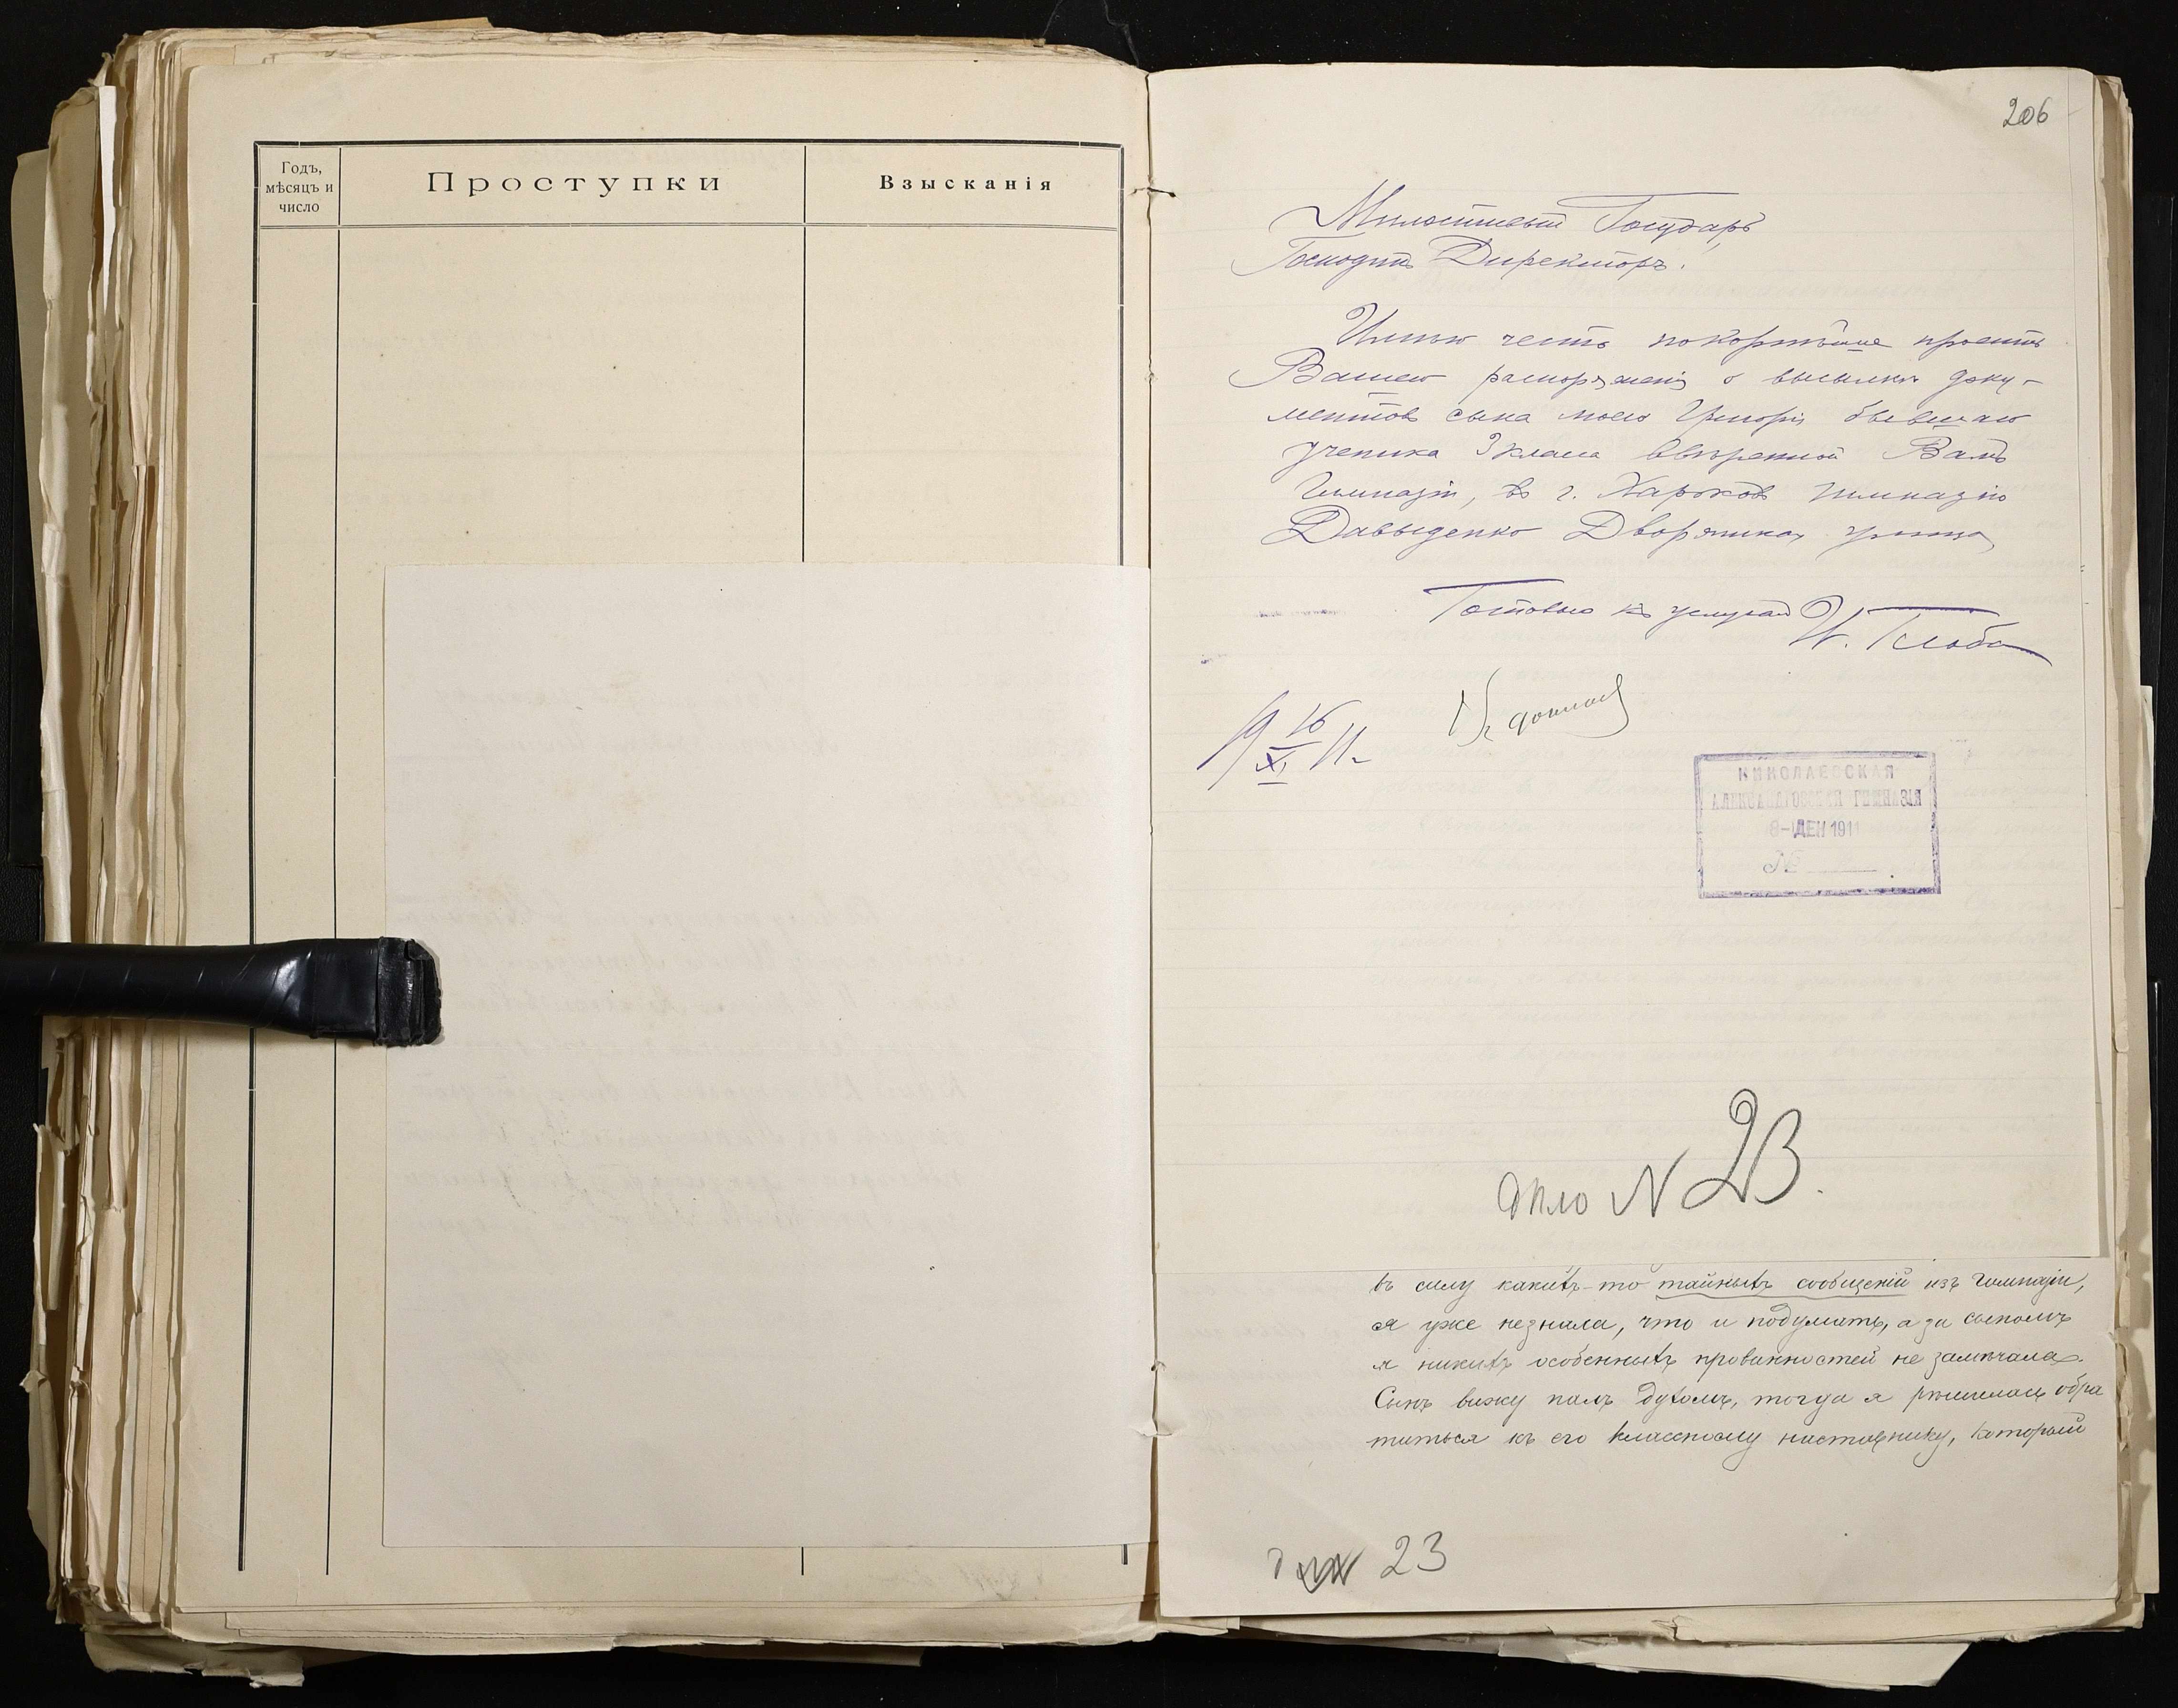 Годъ,
мѣсяцъ и
число
Проступки
Взысканія
206
Милостивый Государь
Господинъ Директоръ!
Имѣю честь покорнѣйше просить
Вашего распоряженія о высылкѣ доку-
ментовъ сына моего Григорія бывшаго
ученика 3 класа ввѣренной Вамъ
Гимназіи, въ г. Харьковъ гимназію
Давыденко Дворянская улица
Готовый къ услугамъ И. Глоба
19 16/XI 11 г.
НИКОЛАЕВСКАЯ
АЛЕКСАНДРОВСКАЯ ГИМНАЗІЯ
8-ДЕК 1911
№
Дѣло N 23.
въ силу какихъ-то тайныхъ сообщеній изъ гимназіи,
я уже незнала, что и подумать, а за сыномъ
я никихъ особенныхъ провинностей не замѣчала.
Сынъ вижу палъ духомъ, тогда я рѣшилась обра
титься къ его классному наставнику, который
23